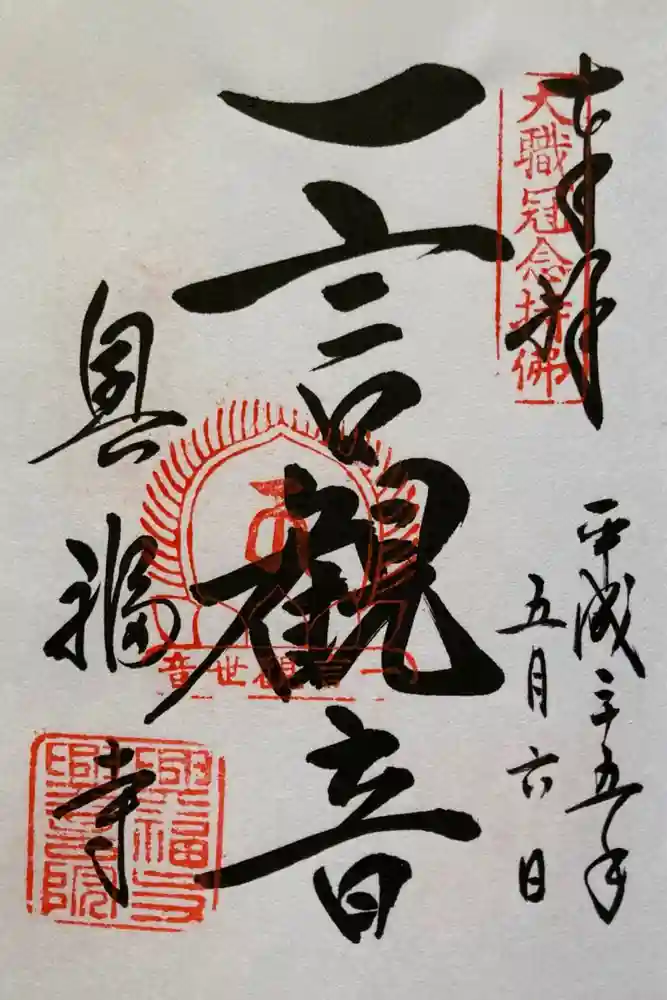 奉拝
大職冠念持佛
平成二十五年
五月六日
一言観音
一言観世音
興福寺